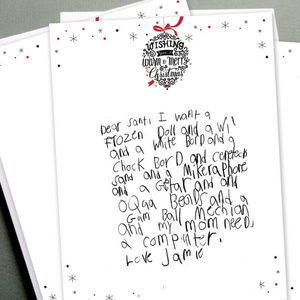 WISHING
warm & merry
Christmas
Dear santi I want a
FROZEN Doll and a Wi'
and a white BorD and a
chock BorD and
sand and a Mikeraphone
and a Getar and and
OQaa Beads and a
Gam Ball Mechian
and my mom need
a computer.
Love Jamie